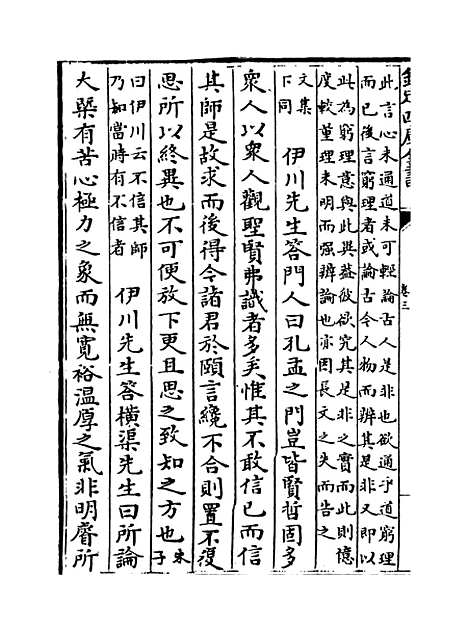 欽定四庫全書
卷三
此言心未通道未可輕論古人是非也欲通乎道窮理
而已後言窮理者或論古今人物而辨其是非又即以
此為窮理意與此異蓋彼欲究其是非之實而此則憶
度較量理未明而强辨論也亦因長文之失而告之
文集
下同
伊川先生答門人曰孔孟之門豈皆賢哲固多
衆人以衆人觀聖賢弗識者多矣惟其不敢信已而信
其師是故求而後得今諸君於頤言纔不合則置不復
思所以終異也不可便放下更且思之致知之方也
朱子
曰伊川云不信其師
乃知當時有不信者
伊川先生答横渠先生曰所論
大槩有苦心極力之象而無寛裕温厚之氣非明睿所